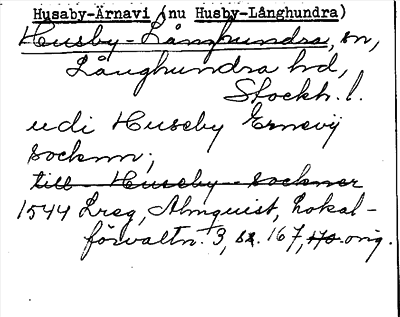 Husaby-Ärnavi (nu Husby-Långhundra)
Husby-Långhundra, sn,
Långhundra hd,
Stockh. l.
udi Huseby Ernevij
socknn;
till Huseby sockner
1544 Lreg, Almquist, Lokal-
förvaltn. 3, s. 167, 170. orig.